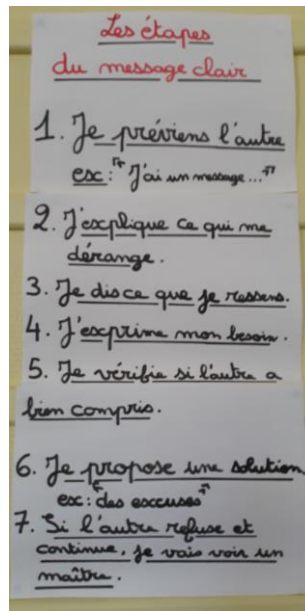 Les étapes
du message clair
1. Je préviens l'autre
ex: "J'ai un message..."
2. J'explique ce qui me
dérange.
3. Je dis ce que je ressens.
4. J'exprime mon besoin.
5. Je vérifie si l'autre a
bien compris.
6. Je propose une solution
ex: "des excuses"
7. Si l'autre refuse et
continue, je vais voir un
maître.